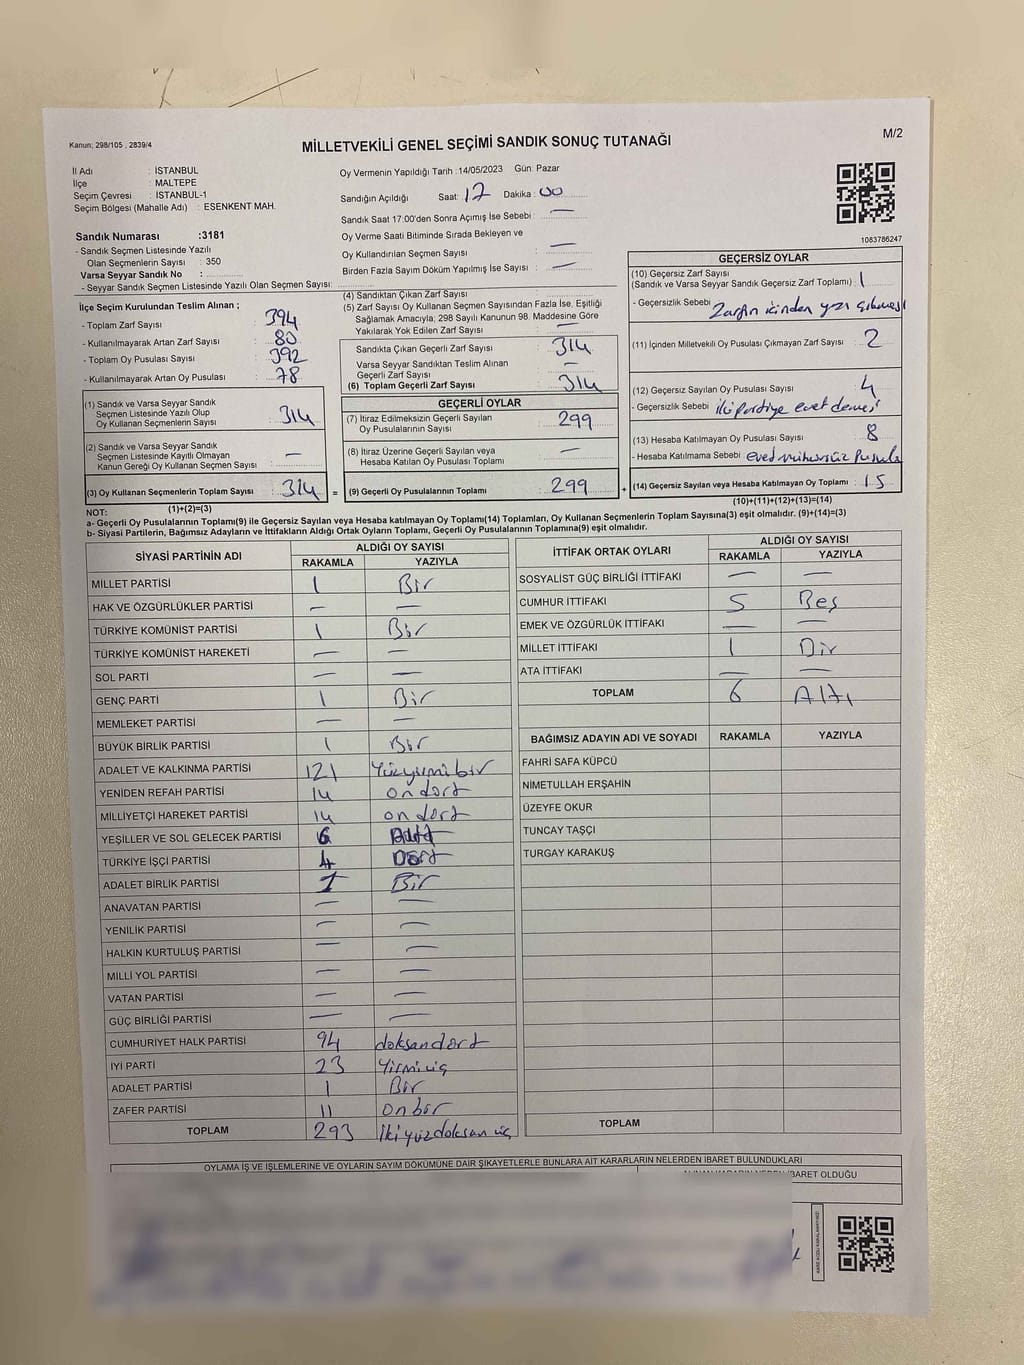 Kanun; 298/105 , 2839/4
MİLLETVEKİLİ GENEL SEÇİMİ SANDIK SONUÇ TUTANAĞI
M/2
İl Adı : İSTANBUL
İlçe : MALTEPE
Seçim Çevresi : İSTANBUL-1
Seçim Bölgesi (Mahalle Adı) : ESENKENT MAH.
Sandık Numarası :3181
- Sandık Seçmen Listesinde Yazılı
Olan Seçmenlerin Sayısı : 350
Varsa Seyyar Sandık No :
- Seyyar Sandık Seçmen Listesinde Yazılı Olan Seçmen Sayısı:
Oy Vermenin Yapıldığı Tarih :14/05/2023 Gün: Pazar
Sandığın Açıldığı Saat: 17 Dakika : 00
Sandık Saat 17:00'den Sonra Açımış İse Sebebi : —
Oy Verme Saati Bitiminde Sırada Bekleyen ve
Oy Kullandırılan Seçmen Sayısı : —
Birden Fazla Sayım Döküm Yapılmış İse Sayısı : —
1083786247
İlçe Seçim Kurulundan Teslim Alınan ;
- Toplam Zarf Sayısı : 394
- Kullanılmayarak Artan Zarf Sayısı : 80
- Toplam Oy Pusulası Sayısı : 392
- Kullanılmayarak Artan Oy Pusulası : 78
(1) Sandık ve Varsa Seyyar Sandık
Seçmen Listesinde Yazılı Olup
Oy Kullanan Seçmenlerin Sayısı : 314
(2) Sandık ve Varsa Seyyar Sandık
Seçmen Listesinde Kayıtlı Olmayan
Kanun Gereği Oy Kullanan Seçmen Sayısı : —
(3) Oy Kullanan Seçmenlerin Toplam Sayısı : 314
(1)+(2)=(3)
(4) Sandıktan Çıkan Zarf Sayısı :
(5) Zarf Sayısı Oy Kullanan Seçmen Sayısından Fazla İse, Eşitliği
Sağlamak Amacıyla; 298 Sayılı Kanunun 98. Maddesine Göre
Yakılarak Yok Edilen Zarf Sayısı : —
Sandıkta Çıkan Geçerli Zarf Sayısı : 314
Varsa Seyyar Sandıktan Teslim Alınan
Geçerli Zarf Sayısı : —
(6) Toplam Geçerli Zarf Sayısı : 314
GEÇERLİ OYLAR
(7) İtiraz Edilmeksizin Geçerli Sayılan
Oy Pusulalarının Sayısı : 299
(8) İtiraz Üzerine Geçerli Sayılan veya
Hesaba Katılan Oy Pusulası Toplamı : —
= (9) Geçerli Oy Pusulalarının Toplamı : 299 +
GEÇERSİZ OYLAR
(10) Geçersiz Zarf Sayısı
(Sandık ve Varsa Seyyar Sandık Geçersiz Zarf Toplamı) : 1
- Geçersizlik Sebebi : Zarfın içinden yazı çıkması
(11) İçinden Milletvekili Oy Pusulası Çıkmayan Zarf Sayısı : 2
(12) Geçersiz Sayılan Oy Pusulası Sayısı : 4
- Geçersizlik Sebebi : iki partiye evet demesi
(13) Hesaba Katılmayan Oy Pusulası Sayısı : 8
- Hesaba Katılmama Sebebi : eved mühürsüz Pusula
(14) Geçersiz Sayılan veya Hesaba Katılmayan Oy Toplamı : 15
(10)+(11)+(12)+(13)=(14)
NOT:
a- Geçerli Oy Pusulalarının Toplamı(9) ile Geçersiz Sayılan veya Hesaba katılmayan Oy Toplamı(14) Toplamları, Oy Kullanan Seçmenlerin Toplam Sayısına(3) eşit olmalıdır. (9)+(14)=(3)
b- Siyasi Partilerin, Bağımsız Adayların ve İttifakların Aldığı Ortak Oyların Toplamı, Geçerli Oy Pusulalarının Toplamına(9) eşit olmalıdır.
SİYASİ PARTİNİN ADI ALDIĞI OY SAYISI
RAKAMLA YAZIYLA
MİLLET PARTİSİ 1 Bir
HAK VE ÖZGÜRLÜKLER PARTİSİ — —
TÜRKİYE KOMÜNİST PARTİSİ 1 Bir
TÜRKİYE KOMÜNİST HAREKETİ — —
SOL PARTİ — —
GENÇ PARTİ 1 Bir
MEMLEKET PARTİSİ — —
BÜYÜK BİRLİK PARTİSİ 1 Bir
ADALET VE KALKINMA PARTİSİ 121 Yüzyirmibir
YENİDEN REFAH PARTİSİ 14 ondört
MİLLİYETÇİ HAREKET PARTİSİ 14 ondört
YEŞİLLER VE SOL GELECEK PARTİSİ 6 Altı
TÜRKİYE İŞÇİ PARTİSİ 4 Dört
ADALET BİRLİK PARTİSİ 1 Bir
ANAVATAN PARTİSİ — —
YENİLİK PARTİSİ — —
HALKIN KURTULUŞ PARTİSİ — —
MİLLİ YOL PARTİSİ — —
VATAN PARTİSİ — —
GÜÇ BİRLİĞİ PARTİSİ — —
CUMHURİYET HALK PARTİSİ 94 doksandört
İYİ PARTİ 23 Yirmiüç
ADALET PARTİSİ 1 Bir
ZAFER PARTİSİ 11 onbir
TOPLAM 293 İkiyüzdoksanüç
İTTİFAK ORTAK OYLARI ALDIĞI OY SAYISI
RAKAMLA YAZIYLA
SOSYALİST GÜÇ BİRLİĞİ İTTİFAKI — —
CUMHUR İTTİFAKI 5 Beş
EMEK VE ÖZGÜRLÜK İTTİFAKI — —
MİLLET İTTİFAKI 1 Bir
ATA İTTİFAKI — —
TOPLAM 6 Altı
BAĞIMSIZ ADAYIN ADI VE SOYADI RAKAMLA YAZIYLA
FAHRİ SAFA KÜPCÜ
NİMETULLAH ERŞAHİN
ÜZEYFE OKUR
TUNCAY TAŞÇI
TURGAY KARAKUŞ
TOPLAM
OYLAMA İŞ VE İŞLEMLERİNE VE OYLARIN SAYIM DÖKÜMÜNE DAİR ŞİKAYETLERLE BUNLARA AİT KARARLARIN NELERDEN İBARET BULUNDUKLARI
İBARET OLDUĞU